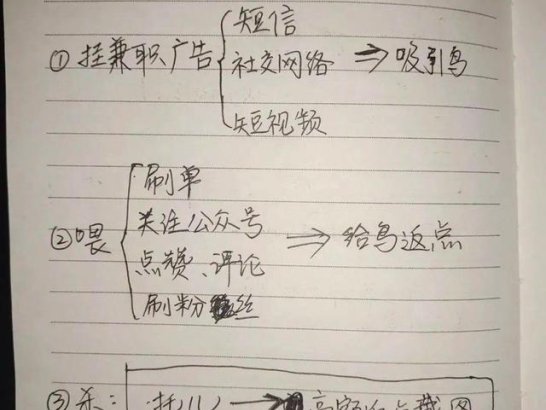 短信
①挂兼职广告 社交网络 ⇒ 吸引鸟
短视频
刷单
关注公众号
②喂 ⇒ 给鸟返点
点赞、评论
刷粉丝
③杀: